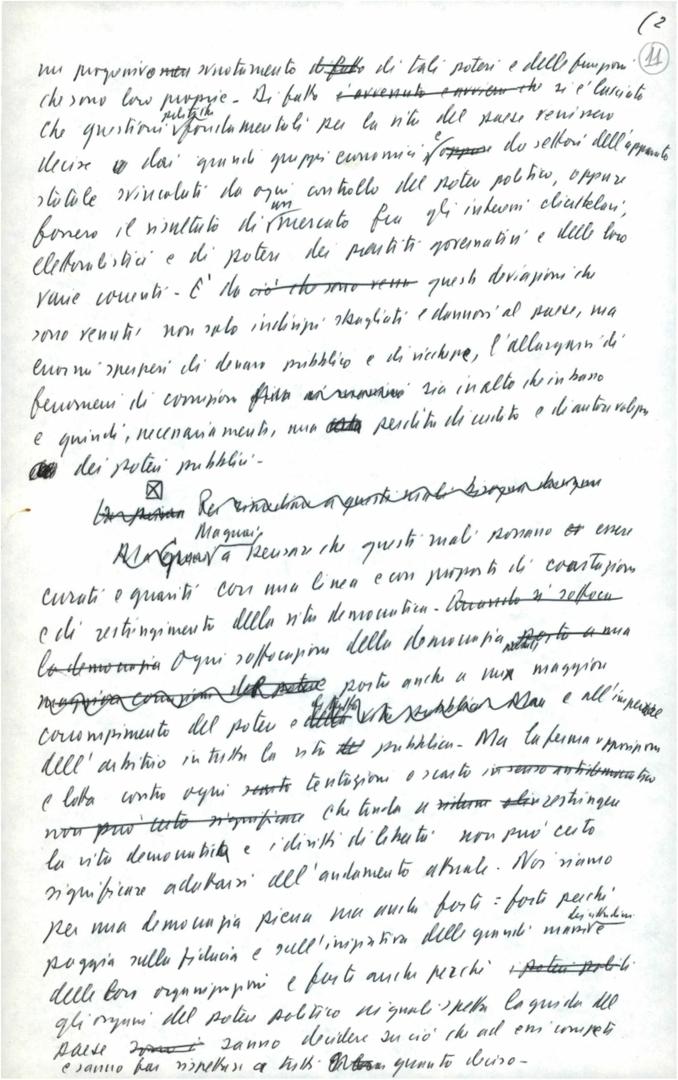 (2
11
un progressivo svuotamento di fatto di tali poteri e delle funzioni
che sono loro proprie - Di fatto è avvenuto e avviene che si è lasciato
politiche
che questioni fondamentali per la vita del paese venissero
decise o dai grandi gruppi economici e oppure da settori dell'apparato
statale svincolati da ogni controllo del potere politico, oppure
un
fossero il risultato di mercato fra gli interessi clientelari,
elettoralistici e di potere dei partiti governativi e delle loro
varie correnti - E' da ciò che sono venu questi deviazioni che
sono venuti non solo indirizzi sbagliati e dannosi al paese, ma
enormi sperperi di denaro pubblico e di ricchezze, l'allargarsi di
fenomeni di corruzione sia in alto che in basso
e quindi, necessariamente, una perdita di credito e di autorevolezza
dei poteri pubblici -
Per rimediare a questi mali bisogna
Ma guai
Ma guai a pensare che questi mali possano essere
curati e guariti con una linea e con proposti di coartazione
e di restringimento della vita democratica - Quando si soffoca
la democrazia Ogni soffocazione della democrazia porta a una
maggiore corruzione del potere porta anche a una maggiore
corrompimento del potere e della vita pubblica e all'imperare
dell'arbitrio in tutta la vita pubblica - Ma la ferma opposizione
e lotta contro ogni tentazione o scarto in senso antidemocratico
non può certo significare che tenda a restringere
la vita democratica e i diritti di libertà non può certo
significare adattarsi all'andamento attuale. Noi siamo
per una democrazia piena ma anche forte : forte perché
dei cittadini
poggia sulla fiducia e sull'iniziativa delle grandi masse
delle loro organizzazioni e forte anche perché i poteri politi
gli organi del potere politico ai quali spetta la guida del
paese sanno decidere su ciò che ad essi compete
e sanno far rispettare a tutti quanto deciso -